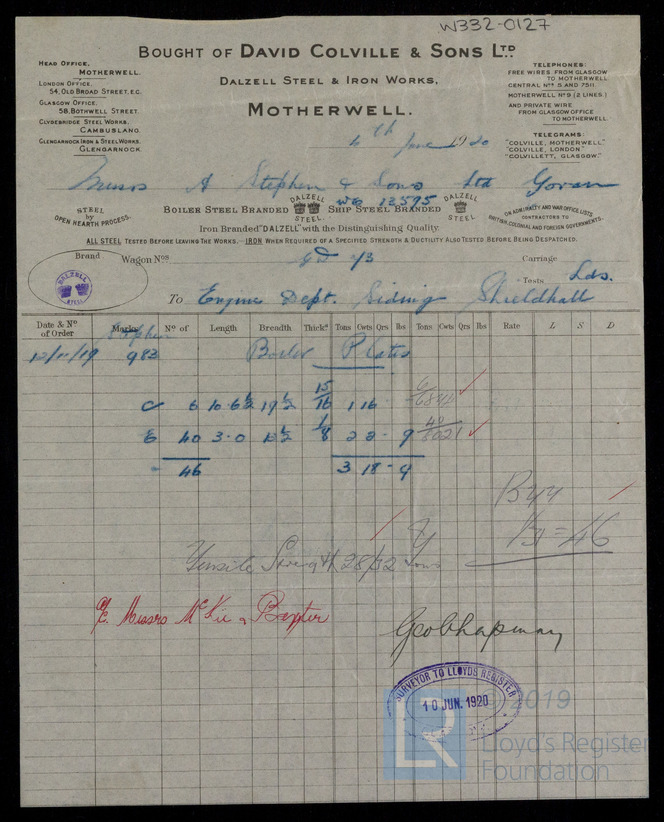 W332-0127
BOUGHT OF DAVID COLVILLE & SONS LTD
DALZELL STEEL & IRON WORKS,
MOTHERWELL.
HEAD OFFICE,
MOTHERWELL.
LONDON OFFICE,
54, OLD BROAD STREET, E.C.
GLASGOW OFFICE,
58, BOTHWELL STREET.
CLYDEBRIDGE STEEL WORKS,
CAMBUSLANG.
GLENGARNOCK IRON & STEEL WORKS,
GLENGARNOCK.
TELEPHONES:
FREE WIRES FROM GLASGOW
TO MOTHERWELL
CENTRAL Nos 5 AND 7511.
MOTHERWELL No 9 (2 LINES)
AND PRIVATE WIRE
FROM GLASGOW OFFICE
TO MOTHERWELL.
TELEGRAMS:
"COLVILLE, MOTHERWELL."
"COLVILLE, LONDON."
"COLVILLETT, GLASGOW."
4th June 1920
Messrs A Stephen & Sons Ltd Govan
STEEL
by
OPEN HEARTH PROCESS.
BOILER STEEL BRANDED DALZELL STEEL. SHIP STEEL BRANDED DALZELL STEEL.
W6 12595
ON ADMIRALTY AND WAR OFFICE LISTS
CONTRACTORS TO
BRITISH, COLONIAL AND FOREIGN GOVERNMENTS.
Iron Branded "DALZELL" with the Distinguishing Quality.
ALL STEEL TESTED BEFORE LEAVING THE WORKS. IRON WHEN REQUIRED OF A SPECIFIED STRENGTH & DUCTILITY ALSO TESTED BEFORE BEING DESPATCHED.
Brand Wagon Nos Carriage
DALZELL
STEEL
Tests Lds.
To Engine Dept. Siding Shieldhall
Date & No of Order Marks No of Length Breadth Thickss Tons Cwts Qrs lbs Tons Cwts Qrs lbs Rate L S D
Stephen
12/11/19 983 Boiler Plates
C 6 10·6½ 19½ 15/16 1 16
40 3·0
46 3 18 - 9
1/3 = 46
Tensile Strength 28/32 tons
a/c. Messrs McKie & Baxter
Geo Chapman
SURVEYOR TO LLOYDS REGISTER
10 JUN. 1920
© 2019
LR
Lloyd's Register
Foundation